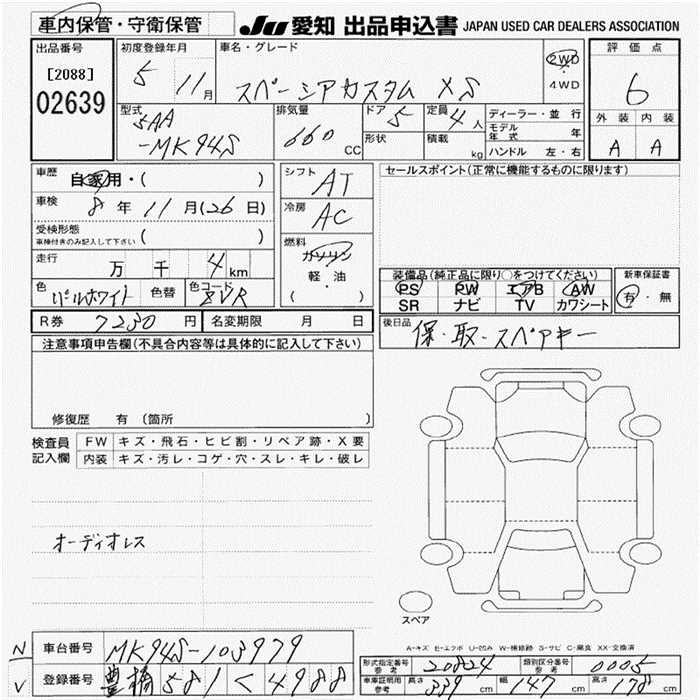 車内保管・守衛保管
JU 愛知 出品申込書 JAPAN USED CAR DEALERS ASSOCIATION
出品番号 [2088] 02639
初度登録年月 5 11月
車名・グレード スペーシアカスタム XS
2WD・4WD
評価点 6
外装 A 内装 A
型式 5AA-MK94S
排気量 660 CC
ドア 5 形状
定員 4人 積載 kg
ディーラー・並行
モデル年式 年
ハンドル 左・右
車歴 自家用・( )
車検 8年11月(26日)
受検形態 車検付きのみ記入して下さい ( )
走行 万 千 4 km
色 パールホワイト 色替 色コード ZVR
シフト AT
冷房 AC
燃料 ガソリン 軽・油 ( )
セールスポイント(正常に機能するものに限ります)
装備品(純正品に限り○をつけてください)
PS PW エアB AW
SR ナビ TV カワシート
新車保証書 有・無
R券 7230円 名変期限 月 日
後日品 保・取・スペアキー
注意事項申告欄(不具合内容等は具体的に記入して下さい)
修復歴 有 (箇所
検査員記入欄
FW キズ・飛石・ヒビ割・リペア跡・X要
内装 キズ・汚レ・コゲ・穴・スレ・キレ・破レ
オーディオレス
スペア
A-キズ E-エクボ U-凹み W-補修跡 S-サビ C-腐食 XX-交換済
N V
車台番号 MK94S-103979
登録番号 豊橋 581 く 4988
形式指定番号 参考 20824 類別区分番号 参考 0005
車庫証明用 参考 長さ 339cm 幅 147cm 高さ 178cm